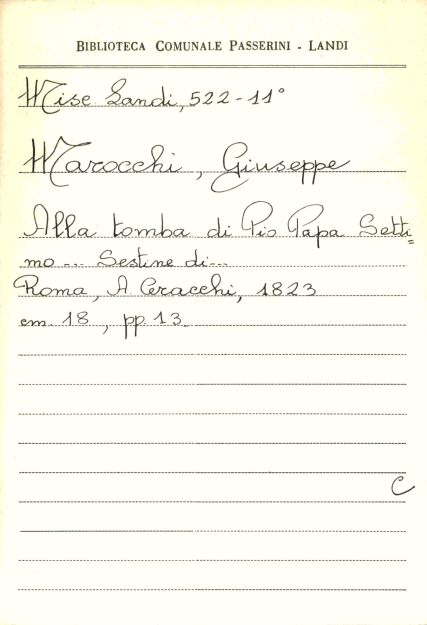 BIBLIOTECA COMUNALE PASSERINI - LANDI
Misc Landi, 522-11°
Marocchi, Giuseppe
Alla tomba di Pio Papa Setti=
mo ... Sestine di...
Roma, A. Ceracchi, 1823
cm. 18, pp. 13.
C